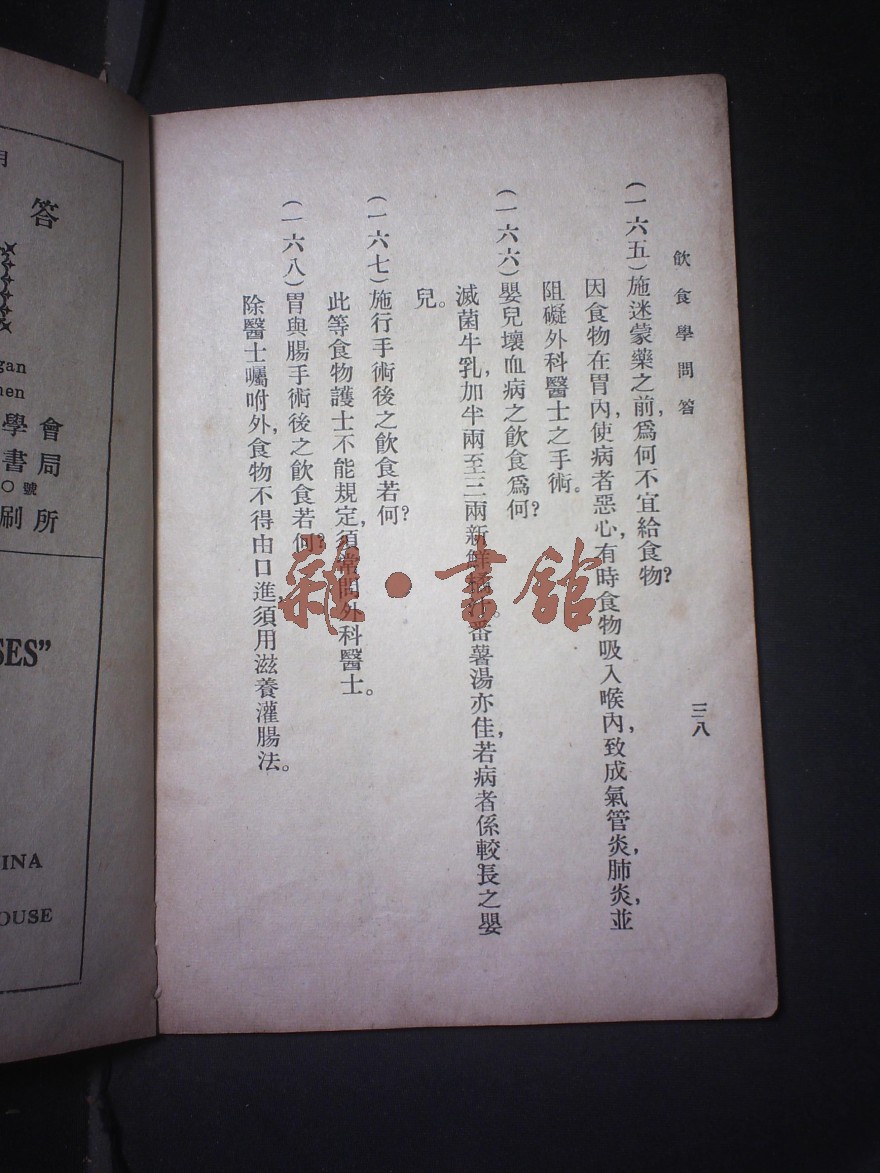 飲食學問答
三八
(一六五)施迷蒙藥之前,爲何不宜給食物?
因食物在胃內,使病者惡心,有時食物吸入喉內,致成氣管炎,肺炎,並
阻礙外科醫士之手術。
(一六六)嬰兒壞血病之飲食爲何?
滅菌牛乳,加半兩至三兩新鮮橘汁。番薯湯亦佳,若病者係較長之嬰
兒。
(一六七)施行手術後之飲食若何?
此等食物護士不能規定,須常問外科醫士。
(一六八)胃與腸手術後之飲食若何?
除醫士囑咐外,食物不得由口進,須用滋養灌腸法。
雜·書館
月
答
gan
men
學會
書局
〇號
刷所
SES”
INA
OUSE